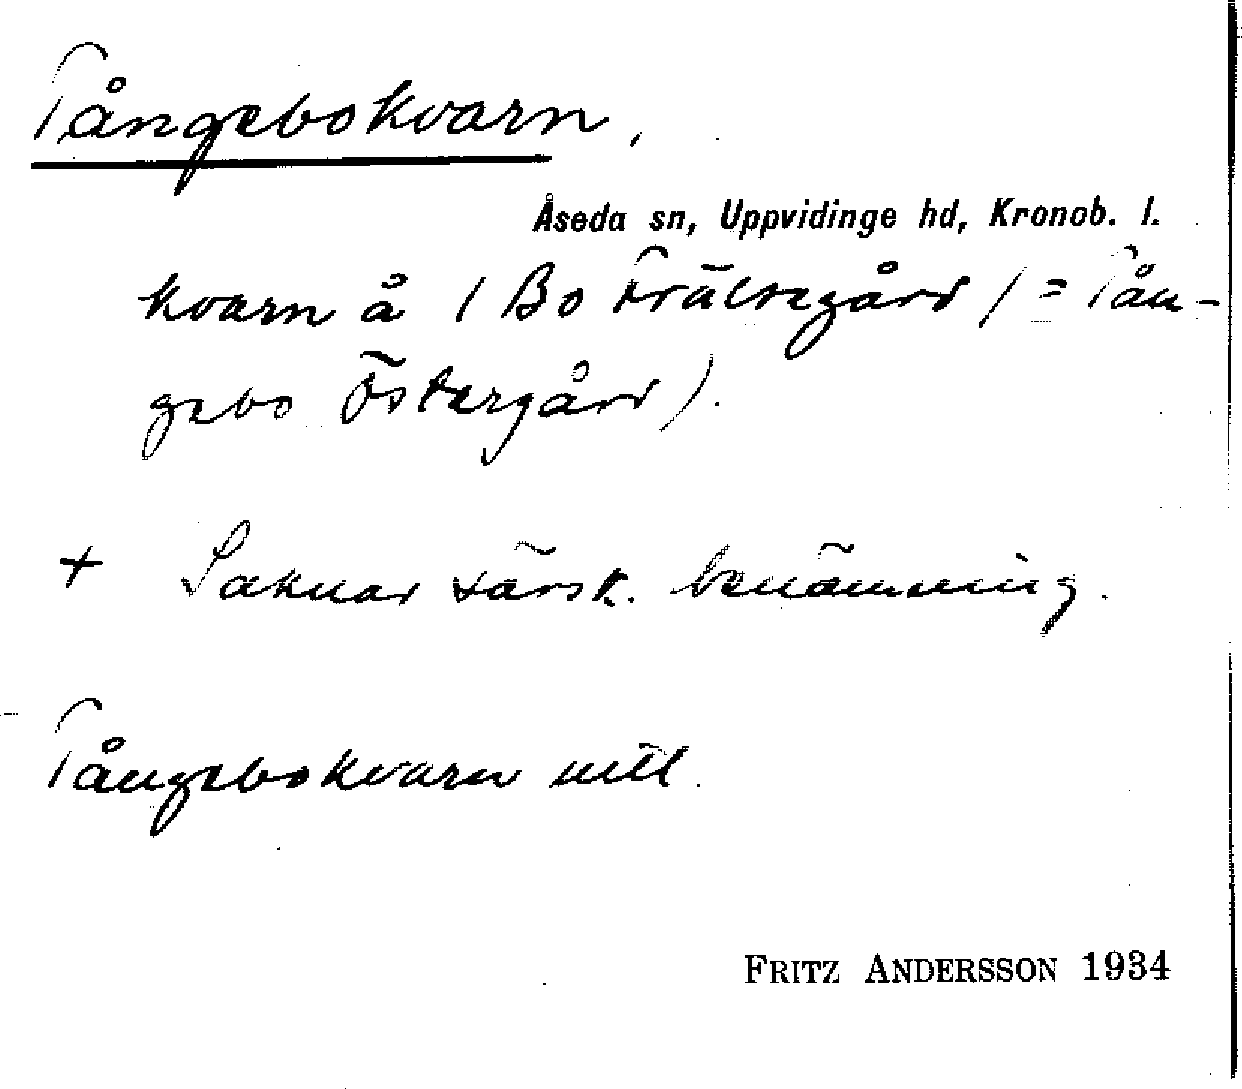 Tångebokvarn,
Åseda sn, Uppvidinge hd, Kronob. l.
kvarn å (Bo Frälsegård / = Tån-
gebo Östergård).
+ Saknar särsk. benämning.
Tångebokvarn
FRITZ ANDERSSON 1934